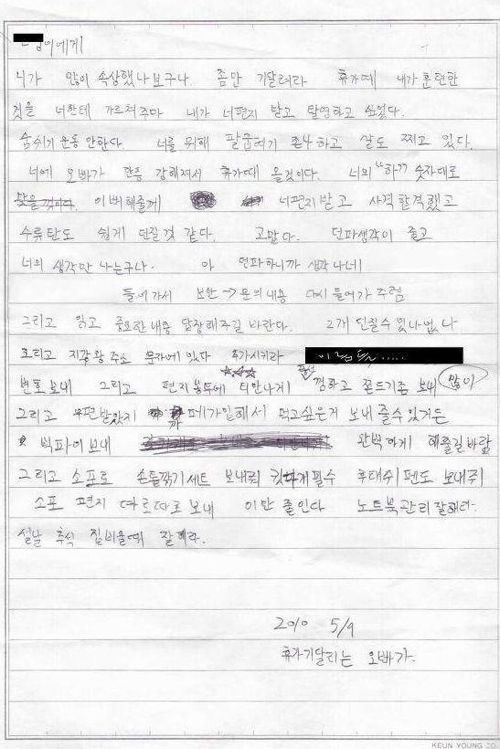 니가 많이 속상했나보구나. 좀만 기달려라 휴가때 내가 훈련한
것을 너한테 가르쳐주마 내가 너편지 받고 탈영하고 싶었다.
숨쉬기 운동 안한다 너를 위해 팔굽혀기 존나 하고 살도 찌고 있다.
너에 오빠가 한층 강해져서 휴가때 올것이다. 너의 "하" 숫자대로
이뻐해줄게 너편지받고 사격합격했고
수류탄도 쉽게 던질것 같다. 고맙다. 던파생각이 줄고
너의 생각만 나는구나. 아 던파하니까 생각나네
들어가서 보안→문의내용 다시 들어가 주럼
그리고 읽고 중요한내용 답장해주길 바란다. 2개 던질수 있나없나
그리고 지각왕 주소 문자에 있다 추가시키라
번호 보내 그리고 편지봉투에 티안나게 껌하고 폰드기좀 보내 많이
그리고 우편받았지 까페가입해서 먹고싶은거 보내 줄수 있거든
빅파이보내 완벽하게 해줄길바람
그리고 소포로 손톱깎기세트 보내줘 후래쉬펜도 보내줘
소포 편지 따로따로 보내 이만 줄인다 노트북관리 잘해라.
설날 추석 집비울때 잘해라.
2010 5/9
휴가기달리는 오빠가.
KEUN YOUNG